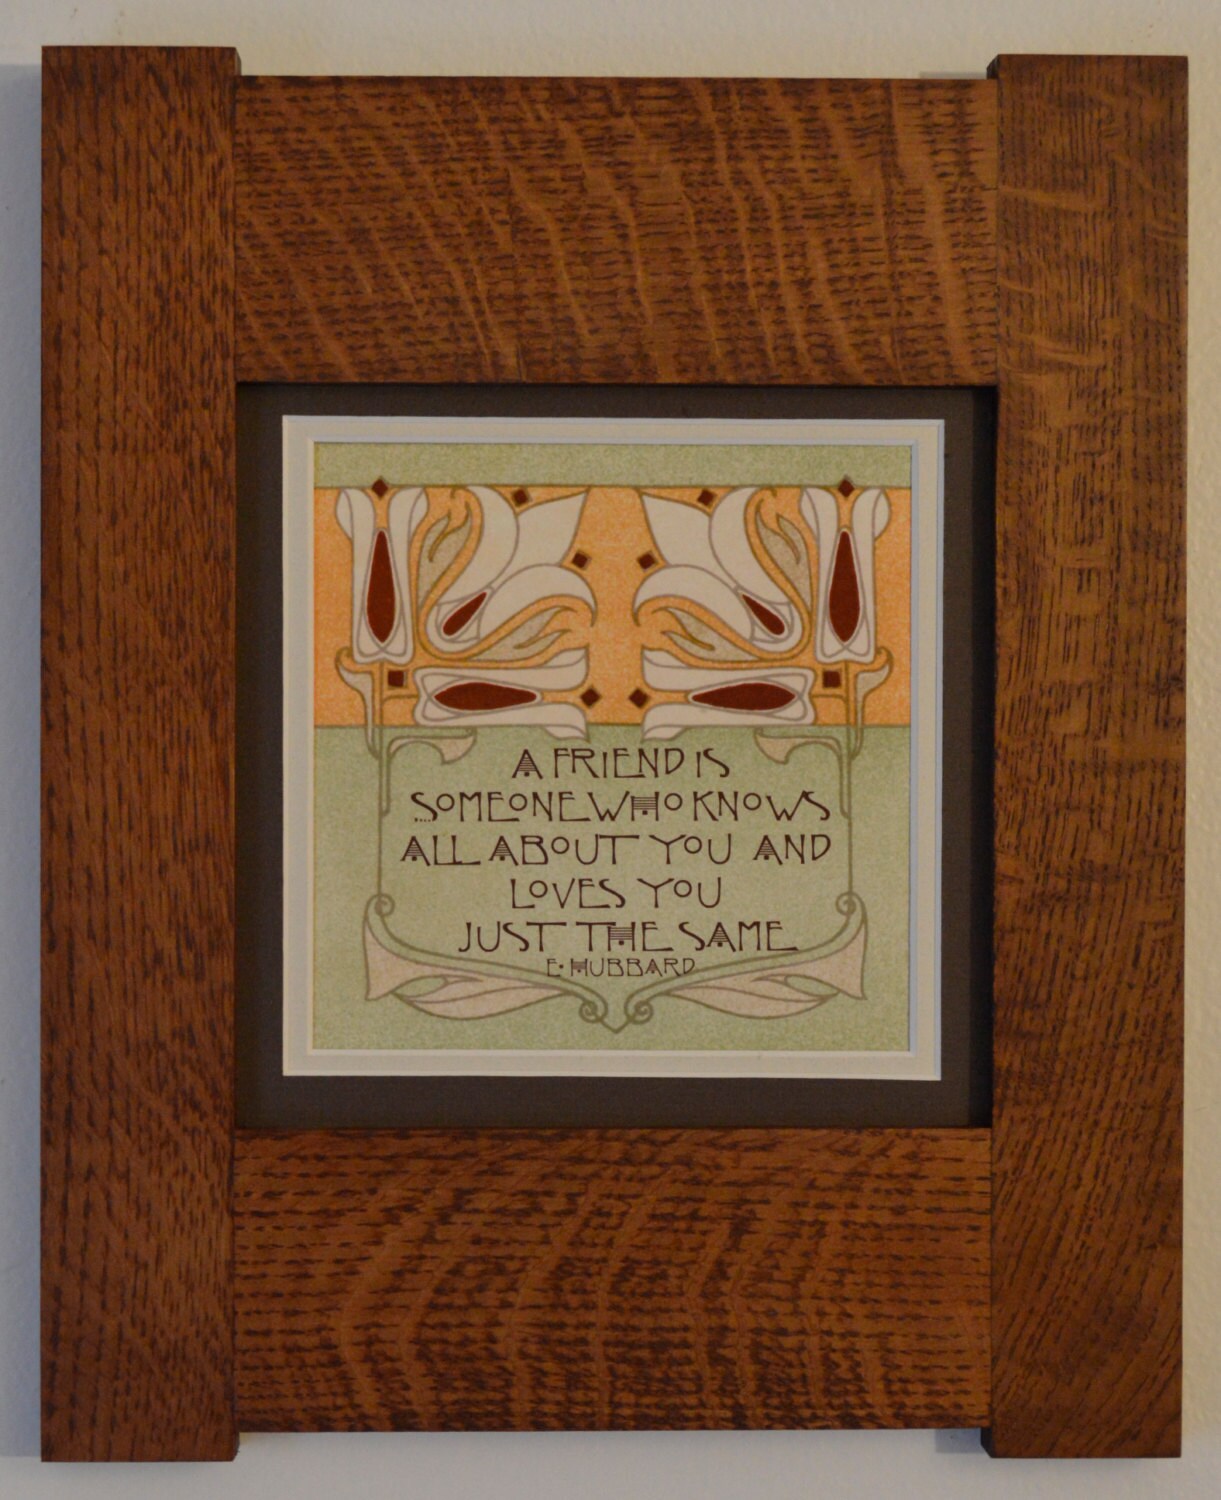 A FRIEND IS
SOMEONE WHO KNOWS
ALL ABOUT YOU AND
LOVES YOU
JUST THE SAME
E·HUBBARD